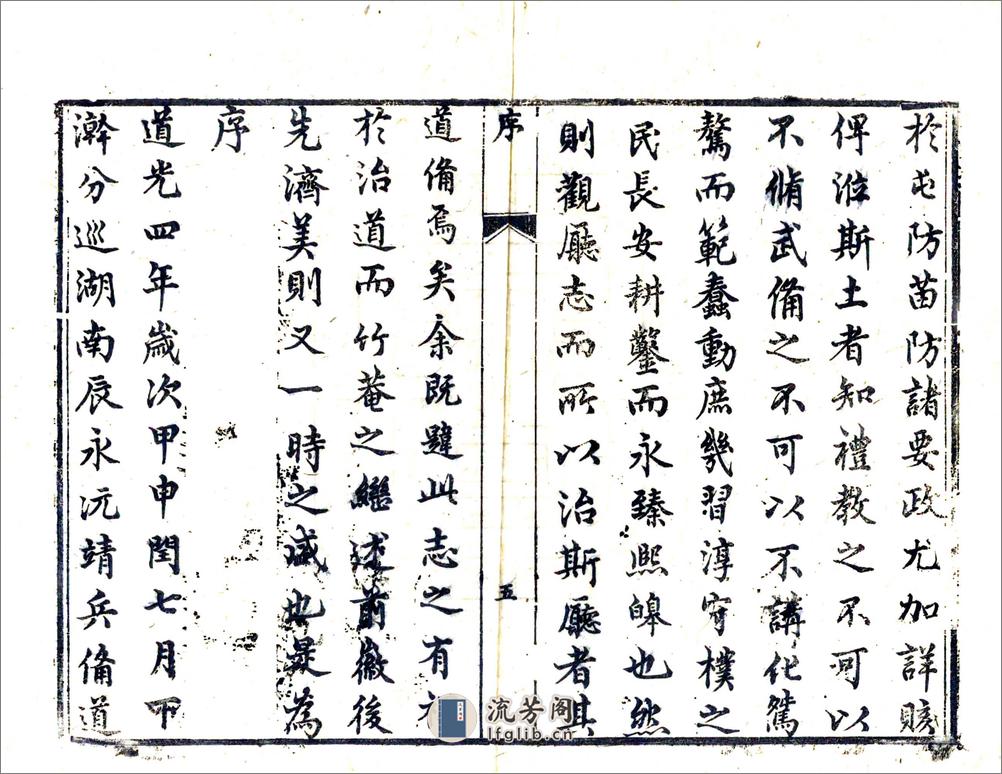 於屯防苗防諸要政尤加詳賅
俾涖斯土者知禮教之不可以
不脩武備之不可以不講化鴑
驁而範蠢動庶幾習淳守樸之
民長安耕鑿而永臻熙皞也然
則觀廳志而所以治斯廳者其
序
五
道備焉矣余既韙此志之有
於治道而竹菴之繼述前徽後
先濟美則又一時之盛也是為
序
道光四年歲次甲申閏七月下
澣分巡湖南辰永沅靖兵備道
流芳阁
lfglib.cn